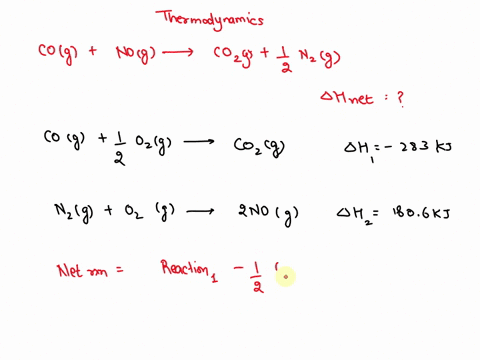 Thermodynamics
CO(g) + NO(g) ⟶ CO2(g) + 1/2 N2(g)
ΔHnet = ?
CO(g) + 1/2 O2(g) ⟶ CO2(g) ΔH1 = - 283 KJ
N2(g) + O2 (g) ⟶ 2NO(g) ΔH2 = 180.6KJ
Net rxn = Reaction1 - 1/2 (